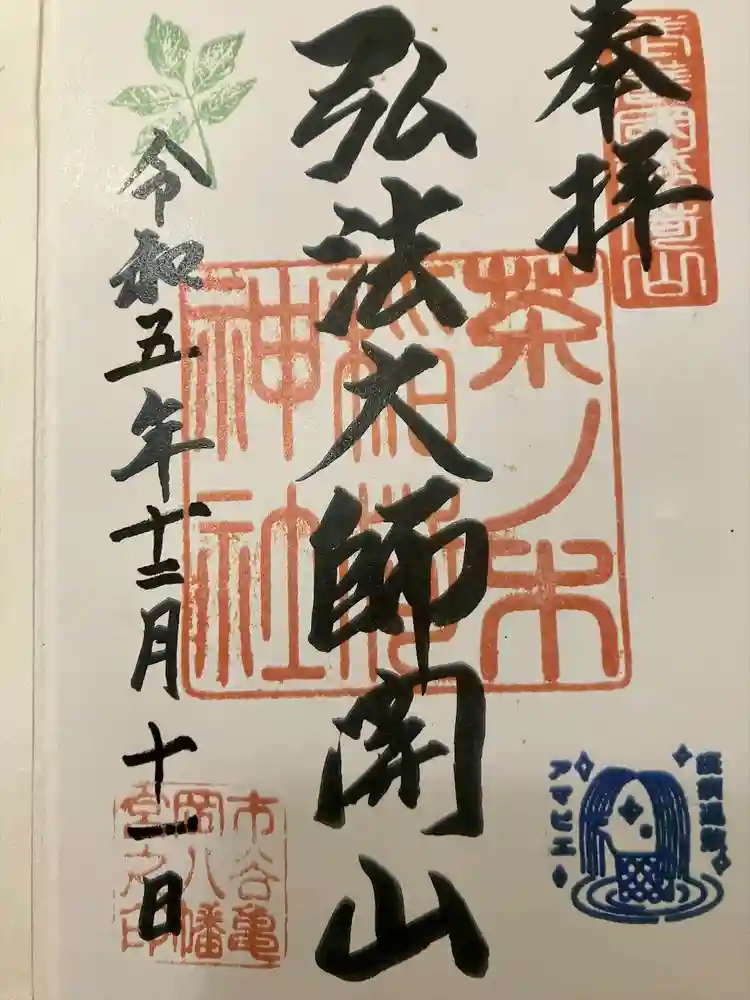 奉拝
弘法大師開山
茶ノ木
稲荷
神社
令和五年十二月十一日
市谷亀
岡八幡
宮之印
アマビエ